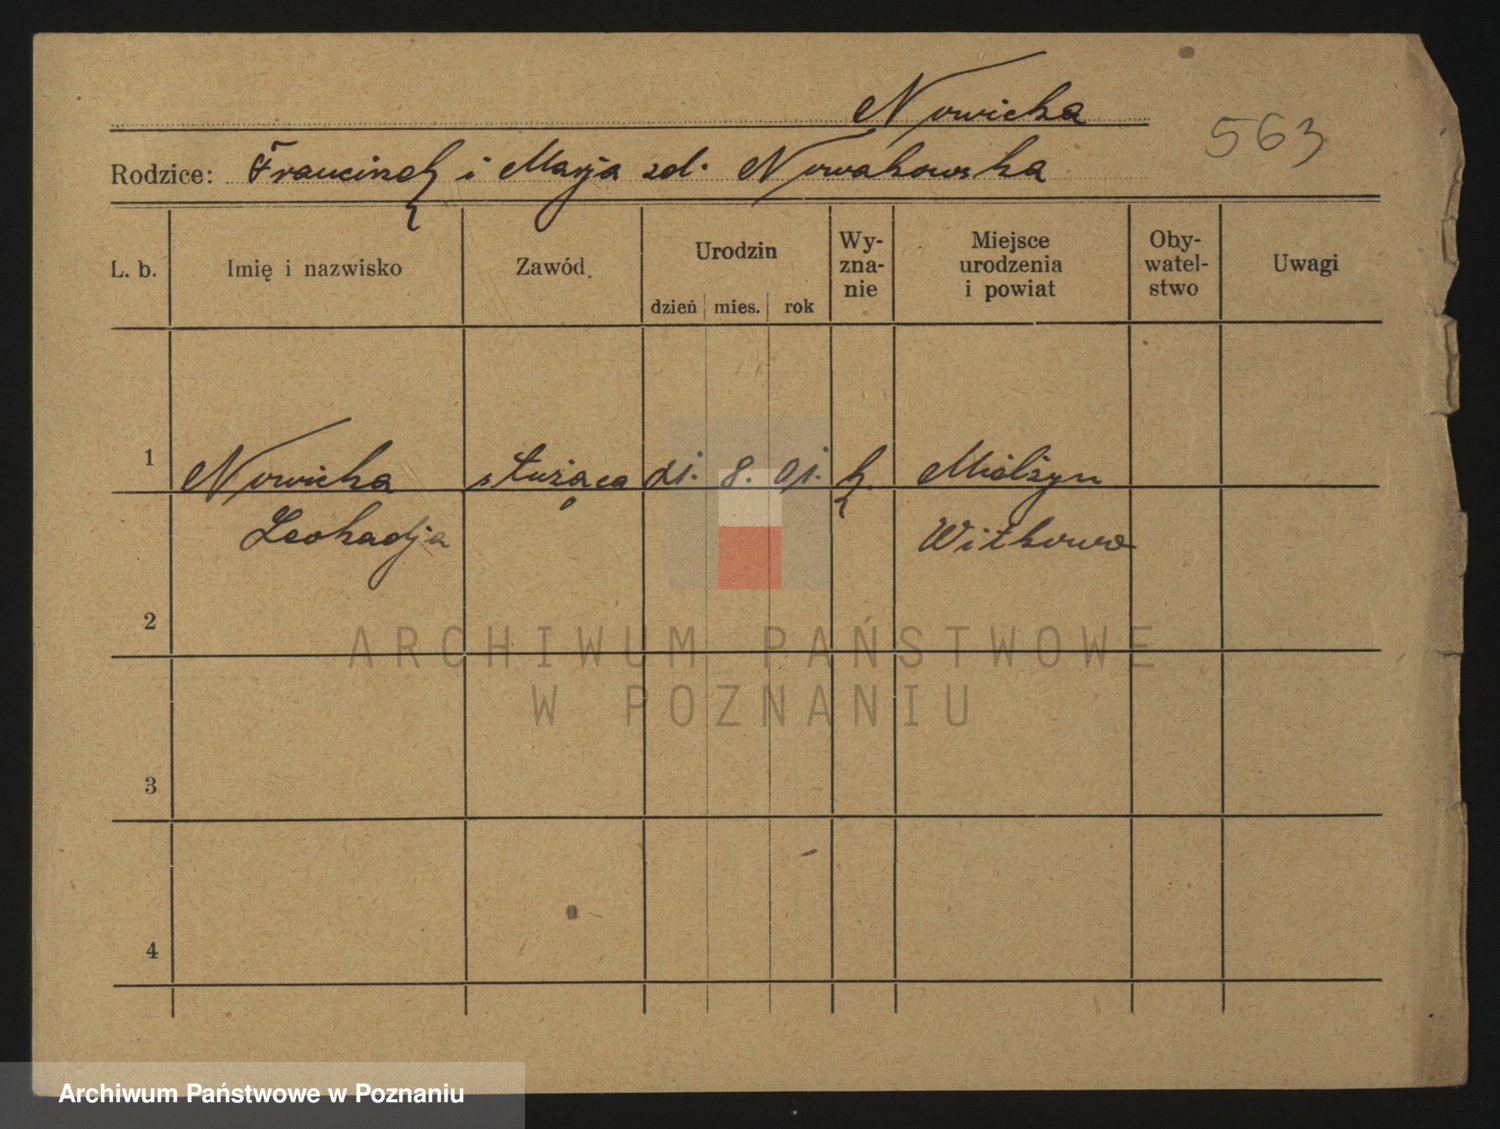 Nowicka
563
Rodzice: Franciszek i Marja zd. Nowakowska
L. b. Imię i nazwisko Zawód. Urodzin Wy-zna-nie Miejsce urodzenia i powiat Oby-watel-stwo Uwagi
dzień mies. rok
1 Nowicka służąca 21. 8. 01. k. Mielżyn
Leokadja Witkowo
2
3
4
ARCHIWUM PAŃSTWOWE
W POZNANIU
Archiwum Państwowe w Poznaniu